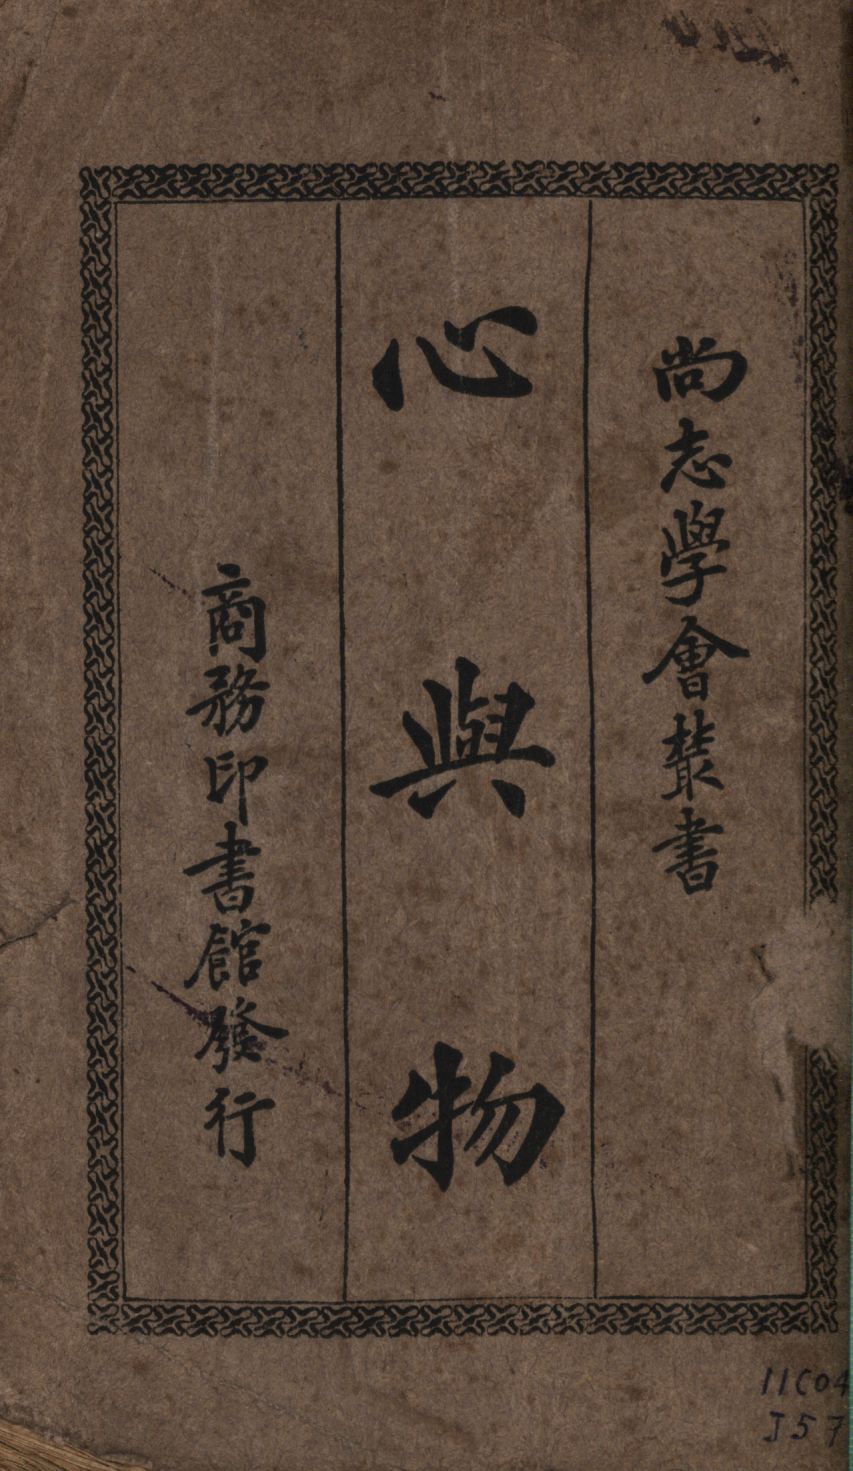 尚志學會叢書
心與物
商務印書館發行
11C04
J57